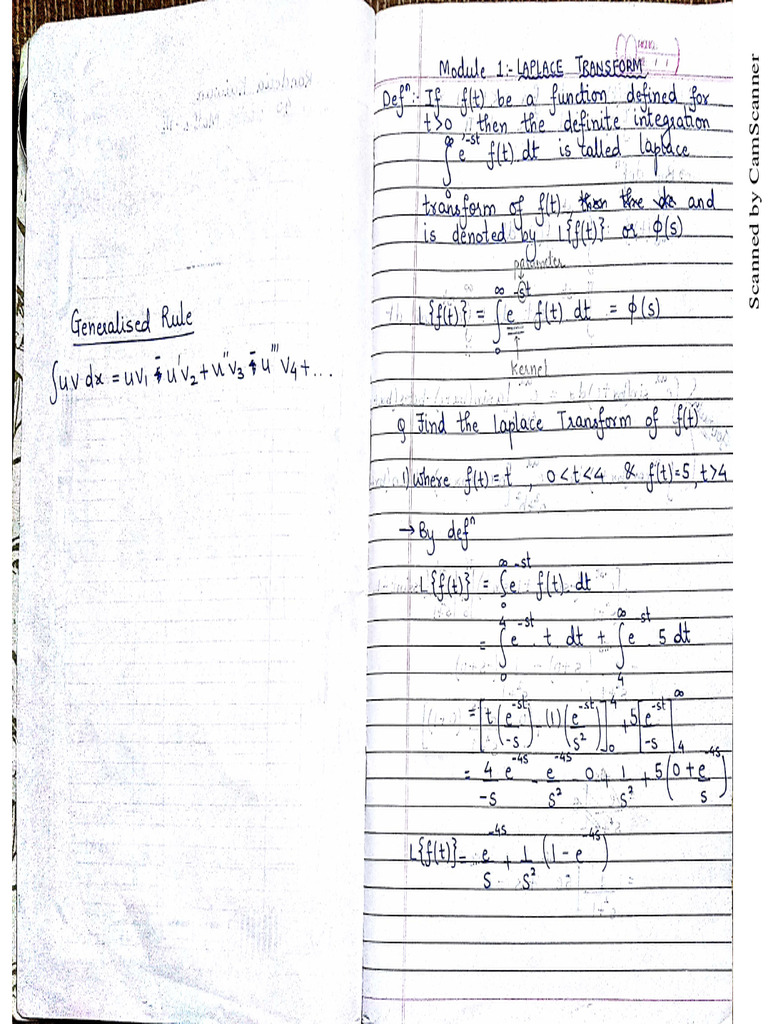 Generalised Rule
∫uv dx = uv₁ - u'v₂ + u''v₃ - u'''v₄ + ...
Module 1:- LAPLACE TRANSFORM
Defⁿ:- If f(t) be a function defined for
t>0 then the definite integration
∫₀^∞ e^-st f(t) dt is called laplace
transform of f(t), then the and
is denoted by L{f(t)} or ϕ(s)
parameter
L{f(t)} = ∫₀^∞ e^-st f(t) dt = ϕ(s)
Kernel
Q Find the Laplace Transform of f(t)
1) where f(t) = t , 0<t<4 & f(t)=5, t>4
→ By defⁿ
L{f(t)} = ∫₀^∞ e^-st f(t) dt
= ∫₀^4 e^-st t dt + ∫₄^∞ e^-st 5 dt
= [t (e^-st/-s) - (1)(e^-st/s²)]₀^4 + 5[e^-st/-s]₄^∞
= 4/-s e^-4s - e^-4s/s² - 0 + 1/s² + 5(0 + e^-4s/s)
L{f(t)} = e^-4s/s + 1/s² (1 - e^-4s)
Scanned by CamScanner